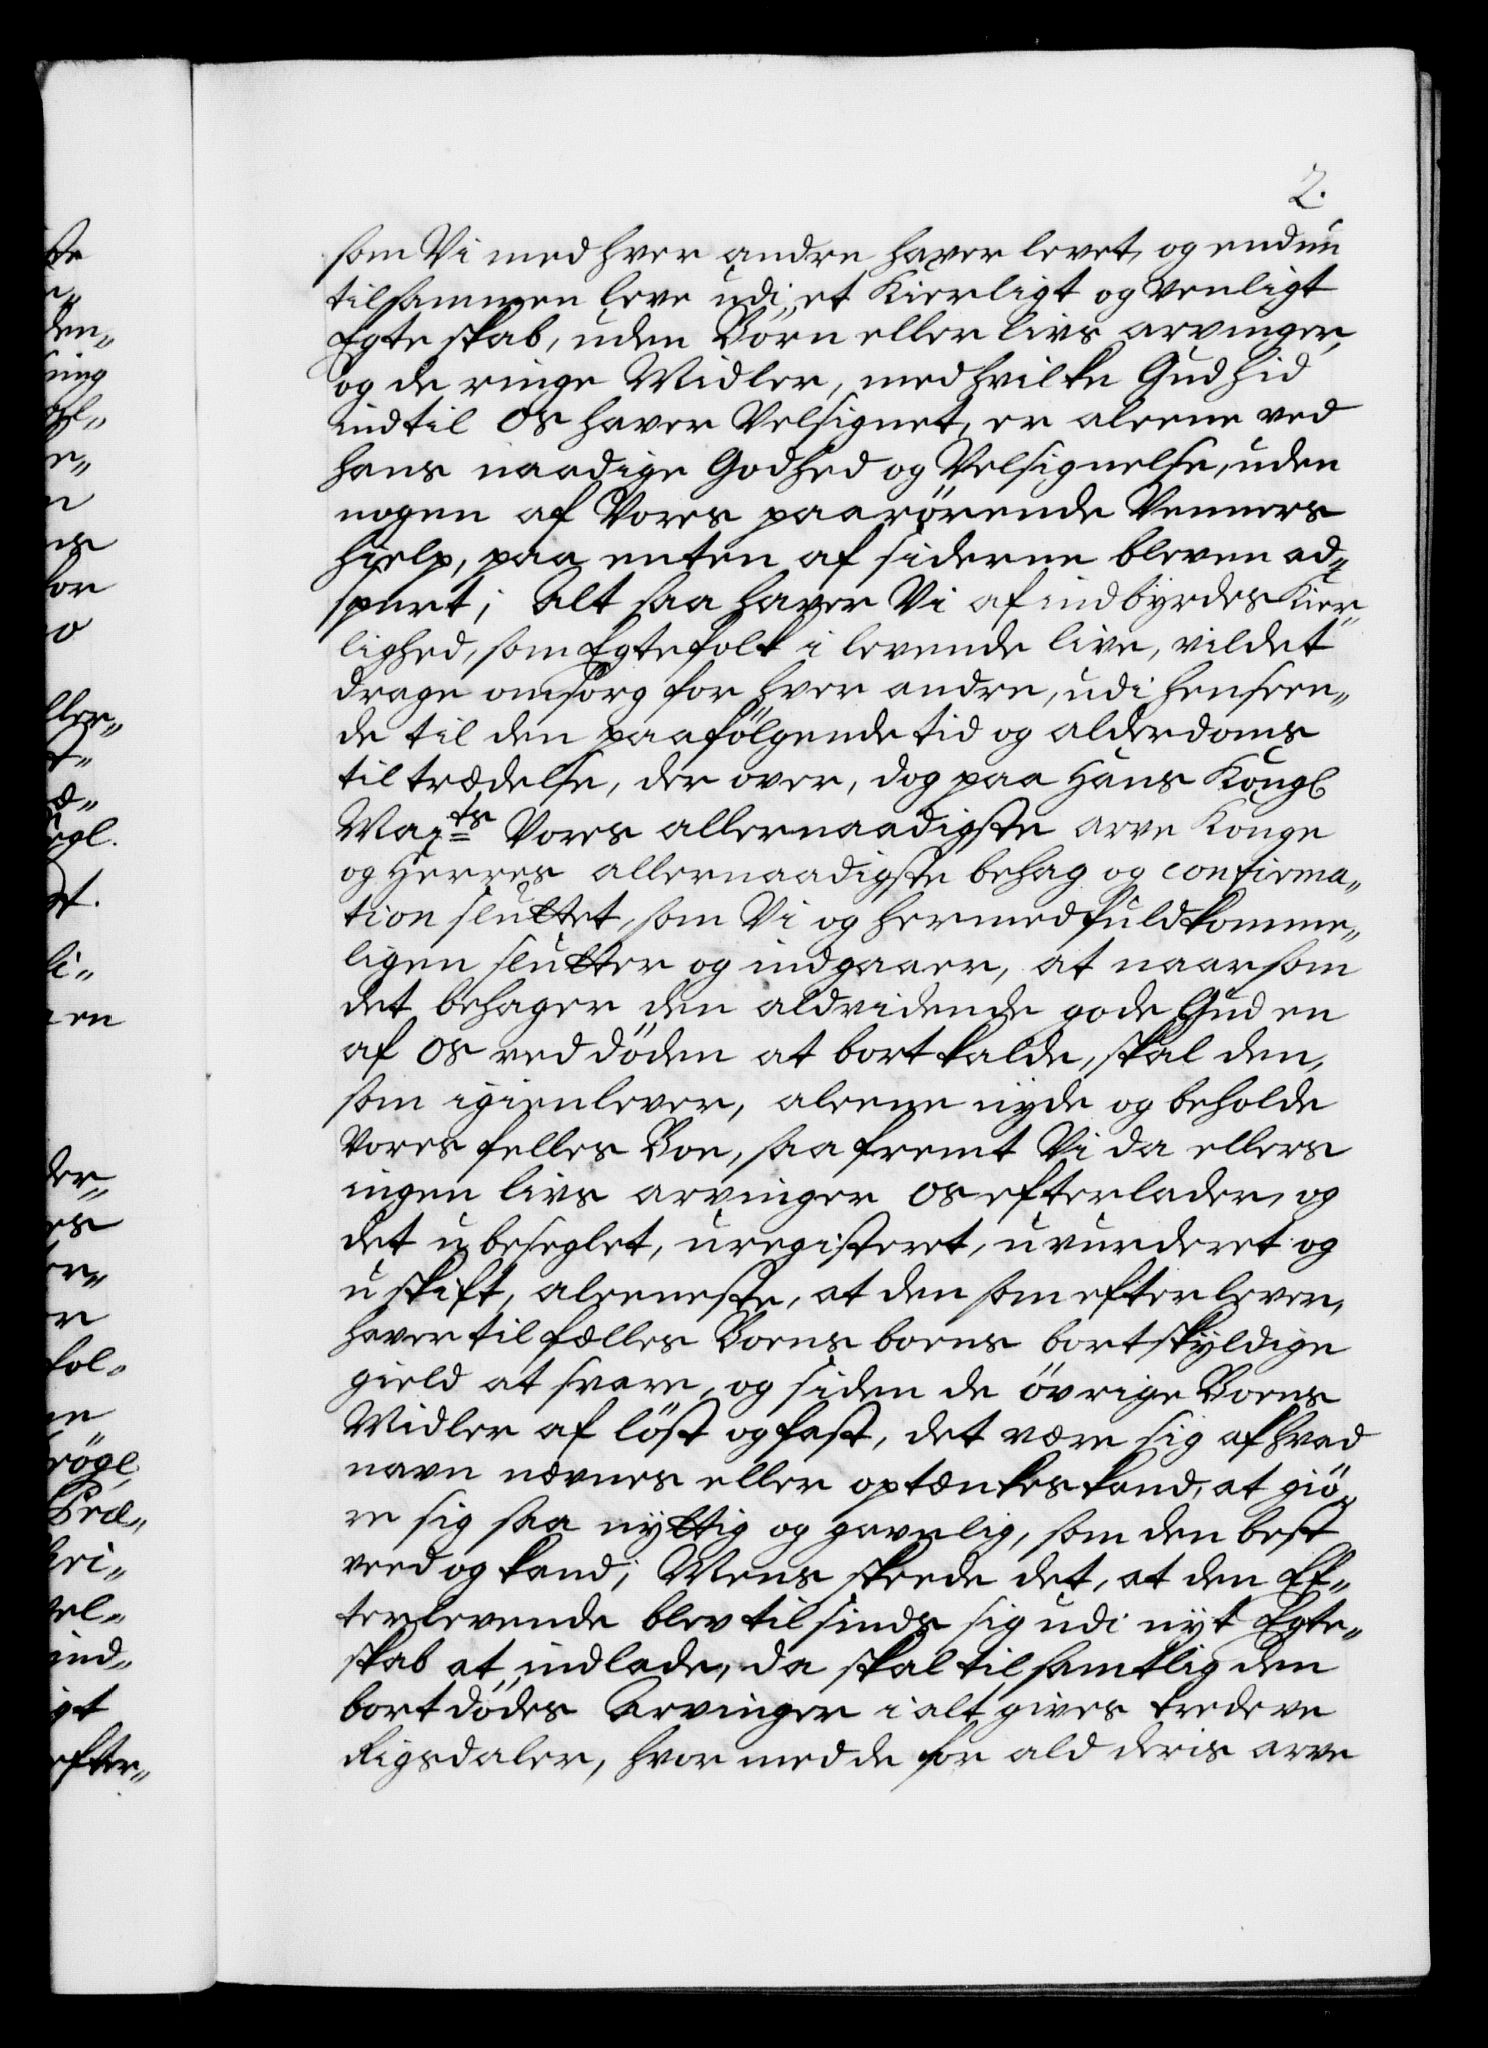 2.
som Vi med hver andre haver levet, og endnu
tilsammen leve udi et Kierligt og venligt
Egteskab, uden Börn eller livs arvinger,
og de ringe Midler, med hvilke Gud hid
indtil os haver Velsignet, er aleene ved
hans naadige Godhed og Velsignelse, uden
nogen af Vores paarörende Venners
hielp, paa enten af siderne bleven ad„
spurt; Alt saa haver Vi af indbyrdes Kier„
lighed, som Egtefolk i levende live, vildet
drage omsorg for hver andre, udi henseen„
de til den paafölgende tid og alderdoms
tiltrædelse, der over, dog paa Hans Kongl
Mayts Vores allernaadigste arve Konge
og Herres allernaadigste behag og confirma„
tion sluttet, som Vi og hermed fuldkomme„
ligen slutter og indgaaer, at naarsom
det behager den aldvidende gode Gud en
af os ved döden at bortkalde, skal den,
som igienlever, aleene nyde og beholde
Vores felles Boe, saafremt Vi da ellers
ingen livs arvinger os efterlader, og
det ubeseglet, uregisteret, uvurderet og
uskift, aleeneste, at den som efterlever,
haver til fælles Boens boens bortskyldige
gield at svare, og siden de övrige Boens
Midler af löst og fast, det være sig af hvad
navn nævnes eller optænkes kand, at giö„
re sig saa nyttig og gavnlig, som den best
veed og kand; Mens skeede det, at den Ef„
terlevende blev tilsinds sig udi nyt Egte„
skab at indlade, da skal til samtlig den
bortdödes Arvinger i alt gives tredeve
Rigsdaler, hvormed de for ald deris arve